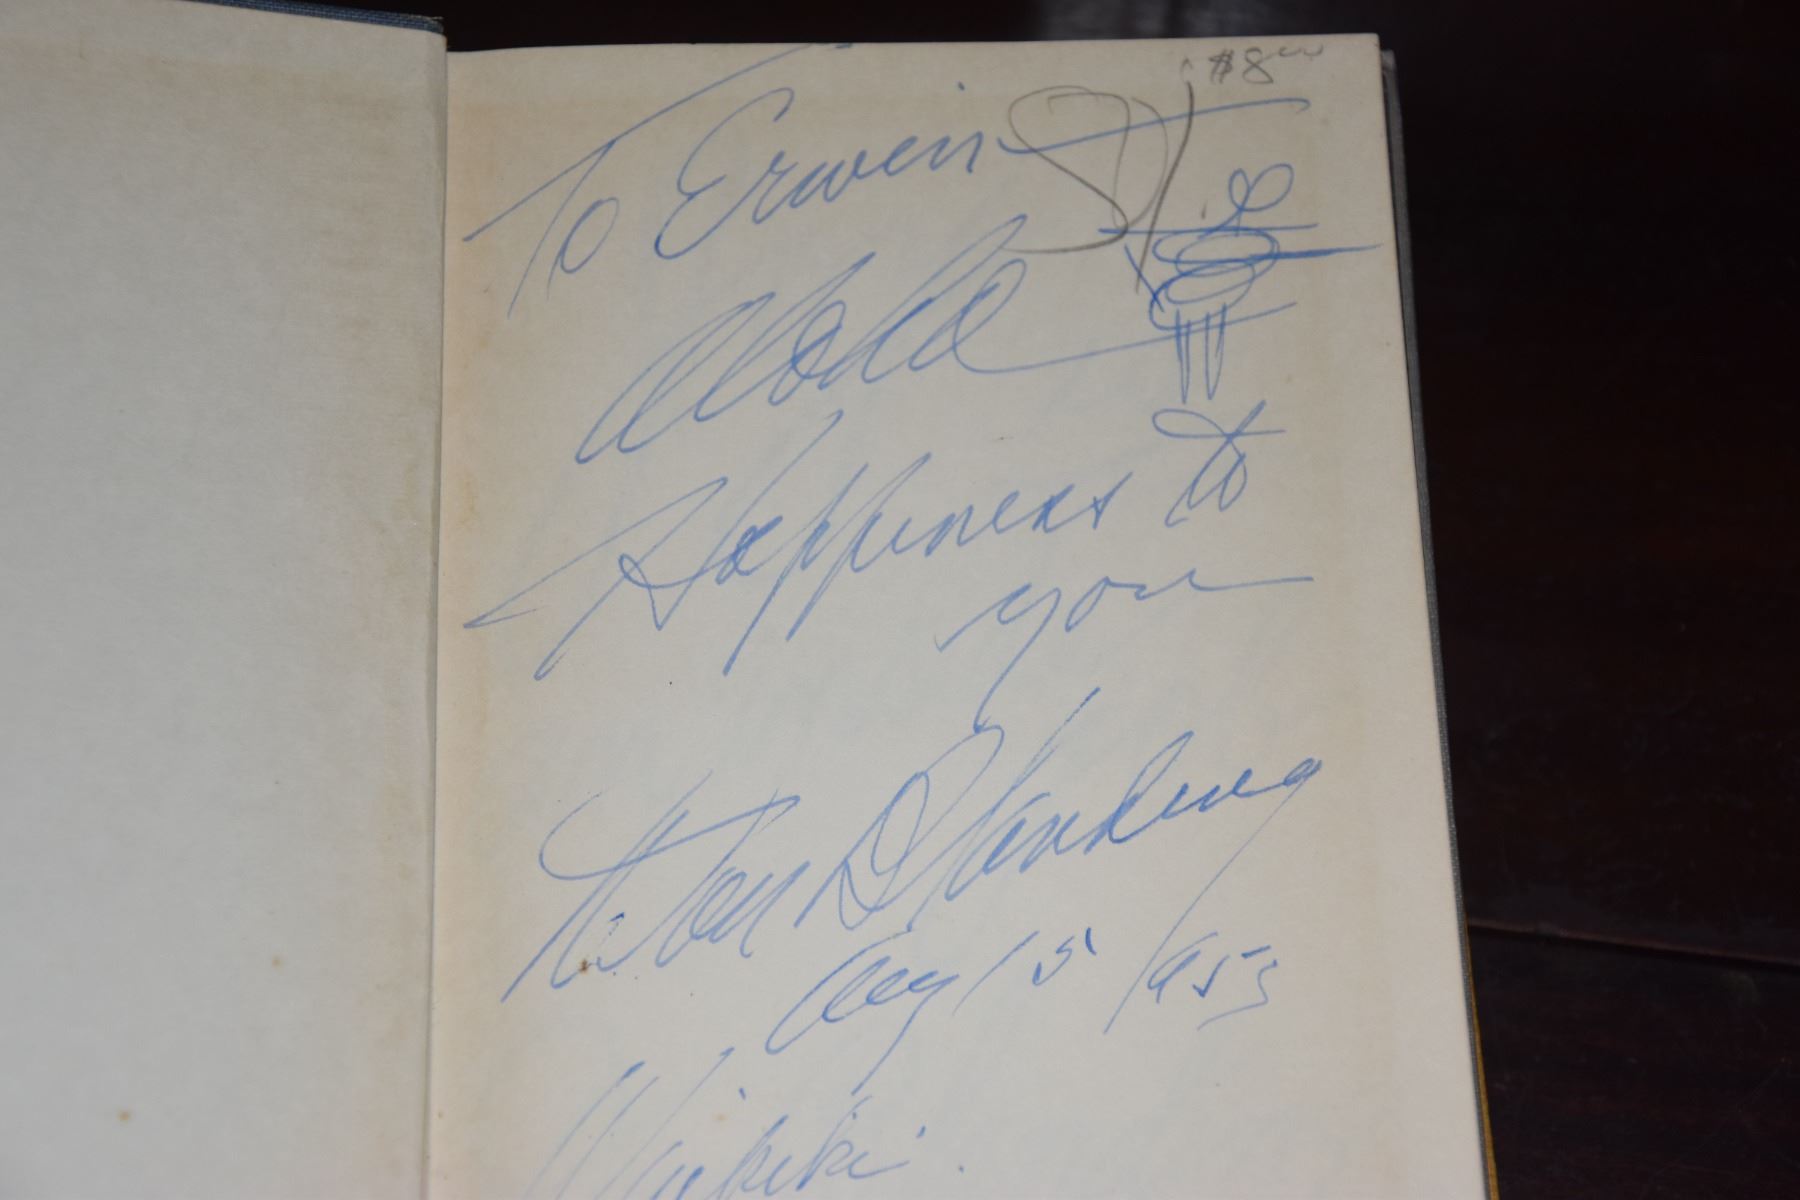 $8
To Erwin
Aloha
Happiness to
you
Don Blanding
Aug 15 1953
Waikiki.